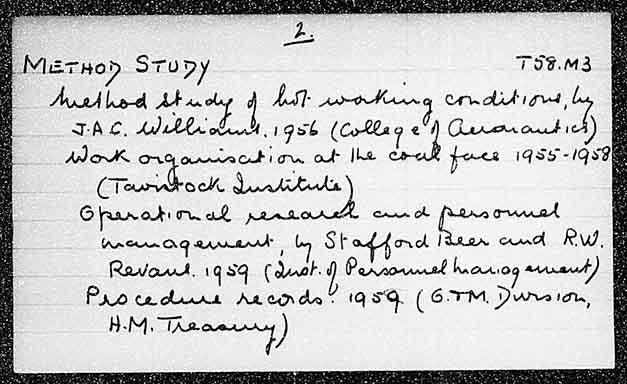 2.
METHOD STUDY T58.M3
Method study of hot working conditions, by
J.A.C. Williams. 1956 (College of Aeronautics)
Work organisation at the coal face 1955-1958
(Tavistock Institute)
Operational research and personnel
management, by Stafford Beer and R.W.
Revans. 1959 (Inst. of Personnel management)
Procedure records. 1959 (O.&M. Division,
H.M. Treasury)